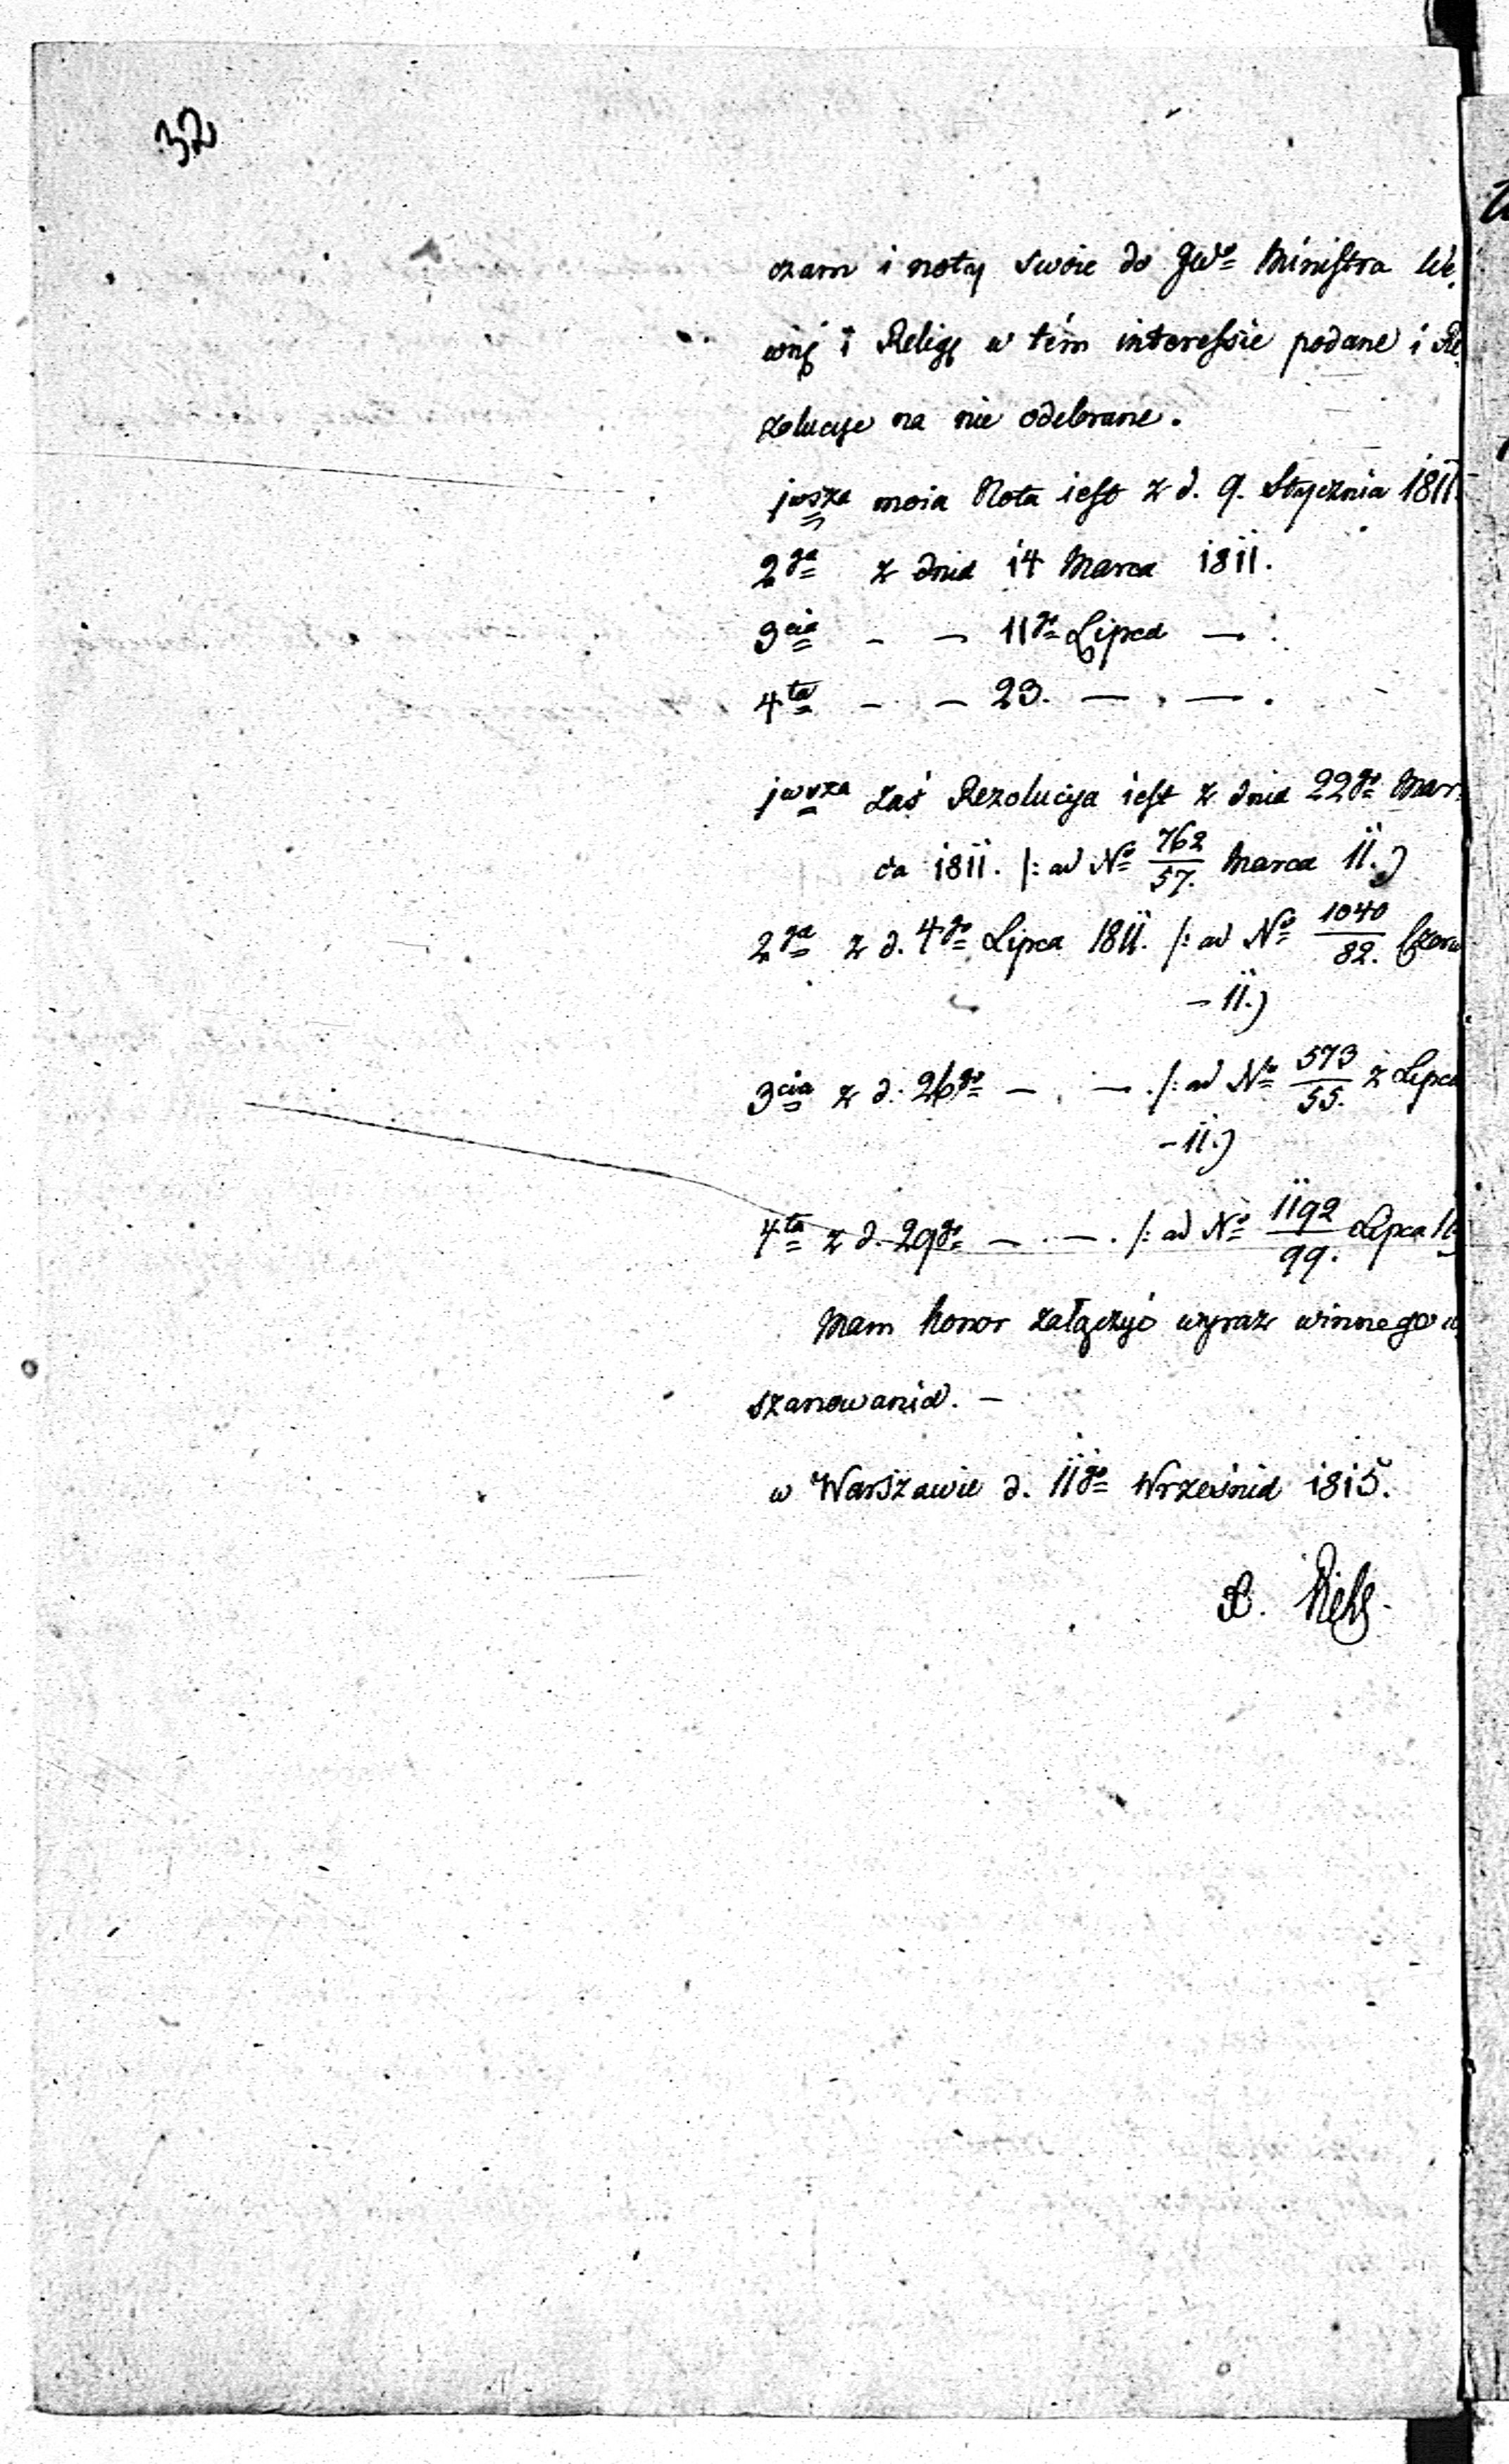 32
czam i noty swoie do JWo Ministra We,
wnę i Relig w tém interessie podane i Re,
zolucye na nie odebrane.
jwsza moia Nota iest z d. 9. Stycznia 1811
2ga z dnia 14 Marca 1811.
3cia - - 11go Lipca - .
4ta - - 23. - . - .
jwsza zaś Rezolucya iest z dnia 22go Mar,
ca 1811. /: ad No 762/57. Marca 11.)
2ga z d. 4go Lipca 1811. /: ad No 1040/82. Czerw
- 11.)
3cia z d. 26go - . - . /: ad No 573/55. z Lipca
- 11.)
4ta z d. 29go - . - . /: ad No 1192/99. Lipca 11)
Mam honor załączyć wyraz winnego
szanowania. -
w Warszawie d. 11go Września 1815.